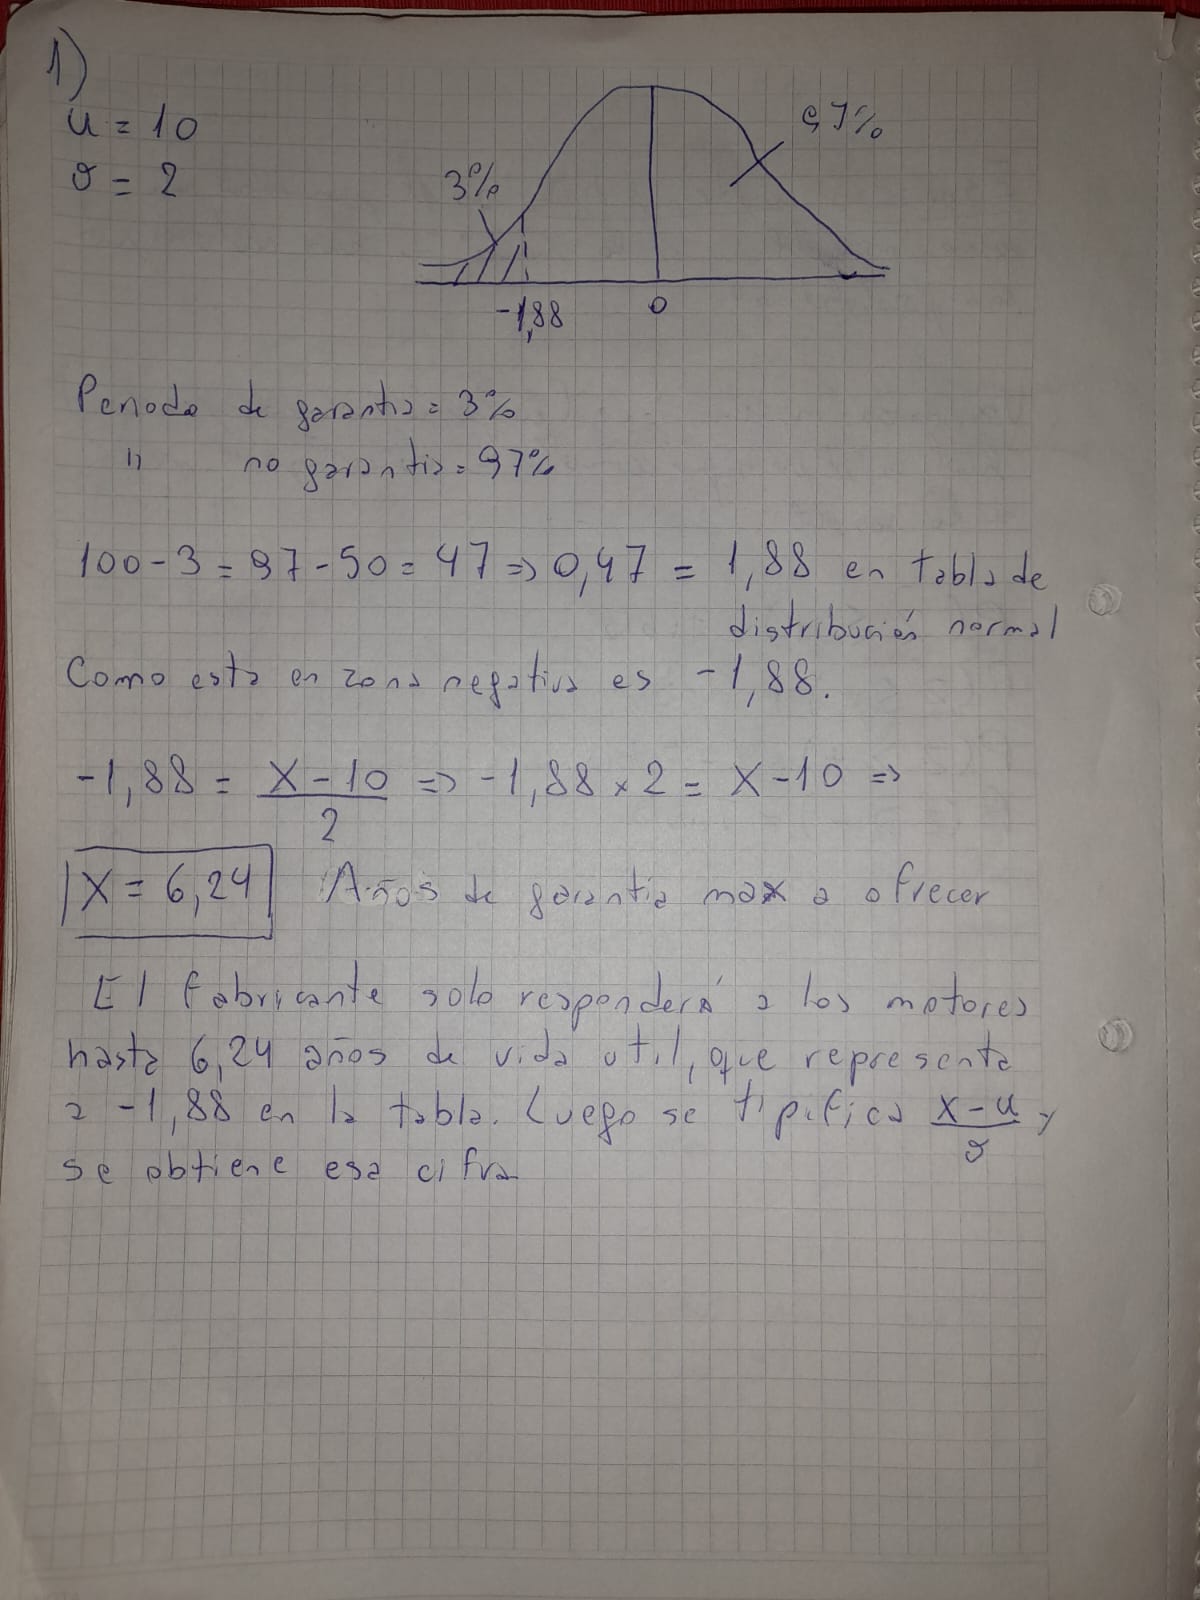 1)
u = 10
σ = 2
97%
3%
-1,88
0
Periodo de garantia = 3%
" no garantia = 97%
100 - 3 = 97 - 50 = 47 => 0,47 = 1,88 en tabla de
distribución normal
Como esta en zona negativa es -1,88.
-1,88 = X - 10 / 2 => -1,88 x 2 = X - 10 =>
X = 6,24 Años de garantia max a ofrecer
El fabricante solo responderá a los motores
hasta 6,24 años de vida util, que representa
a -1,88 en la tabla. Luego se tipifica X - u / σ y
se obtiene esa cifra